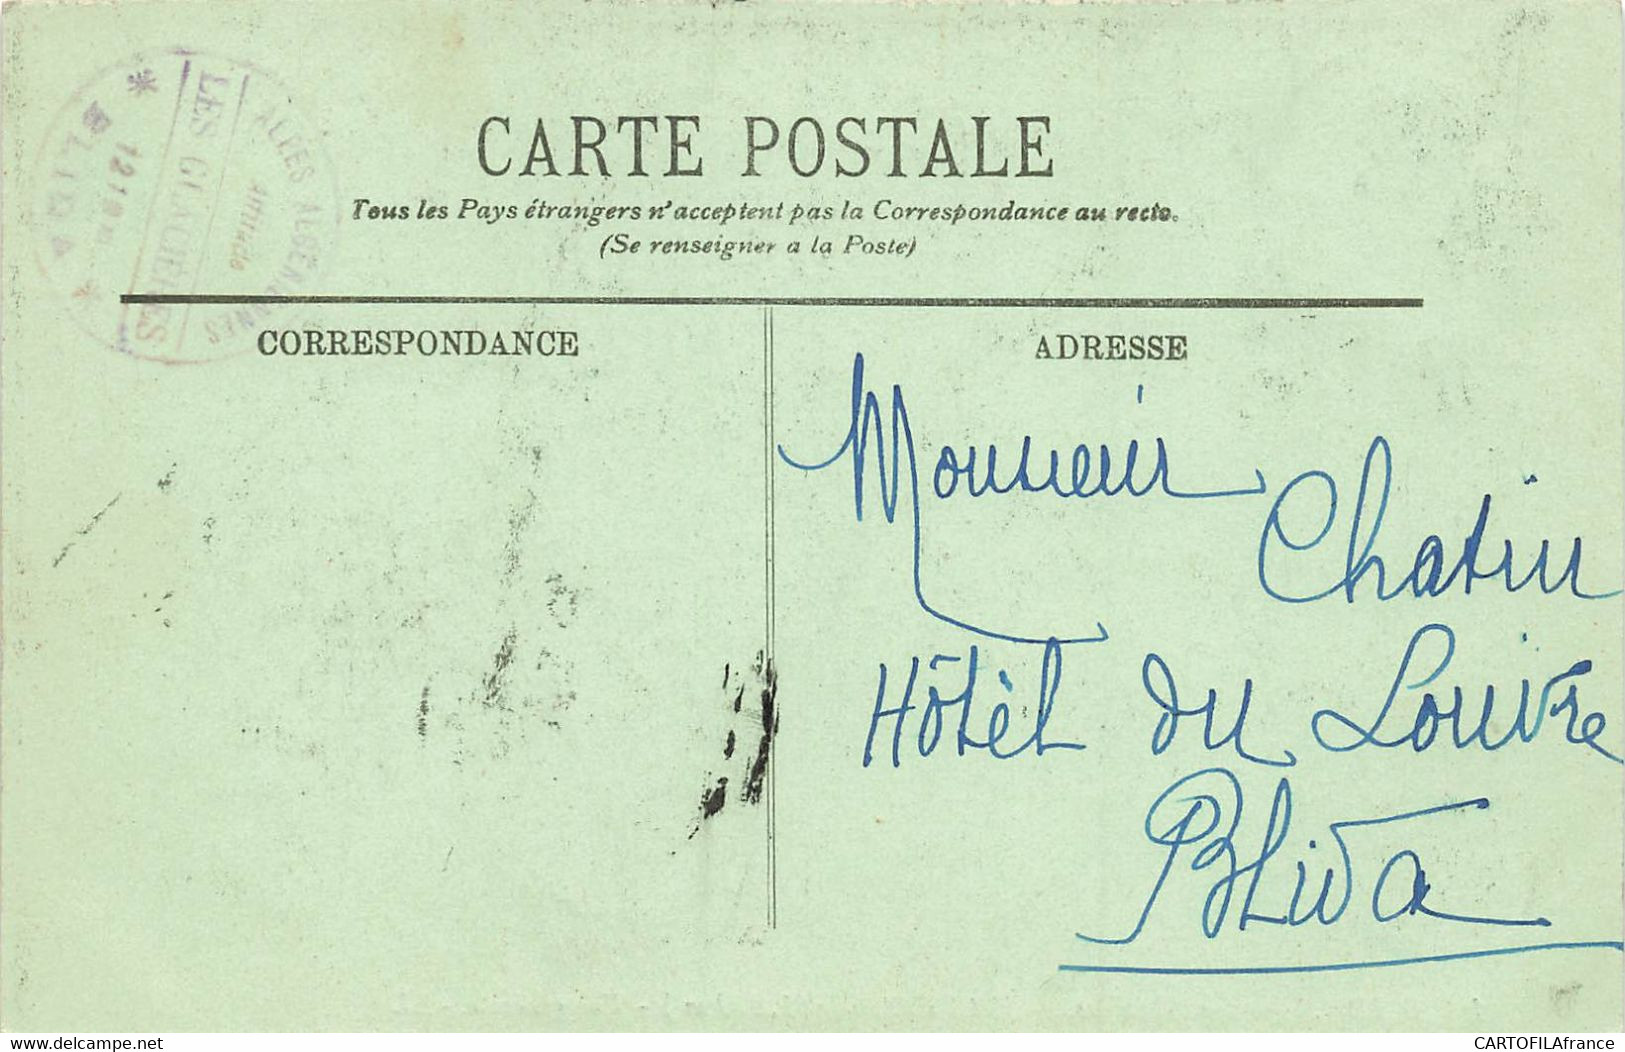 CARTE POSTALE
Tous les Pays étrangers n'acceptent pas la Correspondance au recto.
(Se renseigner a la Poste)
BLIDA
LES
ALGÉRIENNES
Amitié
CORRESPONDANCE
ADRESSE
Monsieur
Chatin
Hôtel du Louvre
Blida
delcampe.net
CARTOFILAfrance